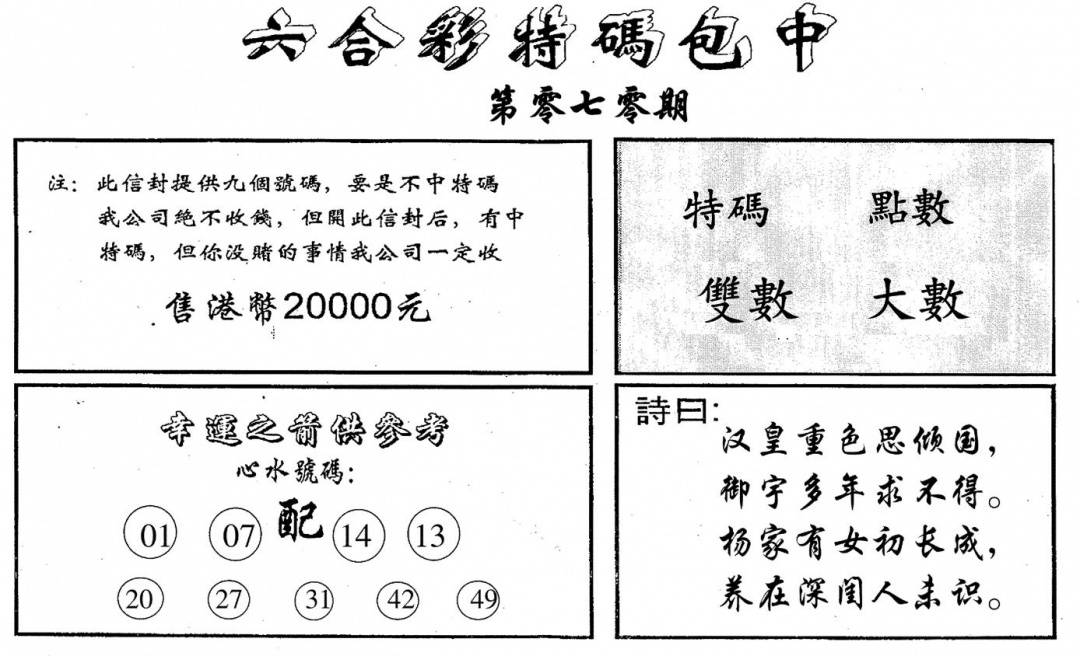 六合彩特碼包中
第零七零期
注：此信封提供九個號碼，要是不中特碼
我公司絕不收錢，但開此信封后，有中
特碼，但你没賭的事情我公司一定收
售港幣20000元
特碼 點數
雙數 大數
幸運之箭供參考
心水號碼：
01 07 配 14 13
20 27 31 42 49
詩曰：
汉皇重色思倾国，
御宇多年求不得。
杨家有女初长成，
养在深闺人未识。